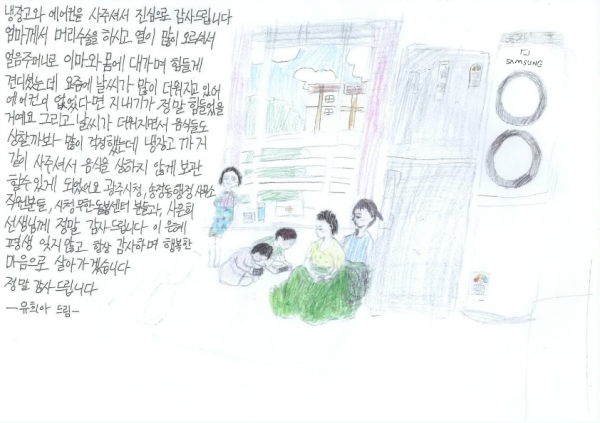 냉장고와 에어컨을 사주셔서 진심으로 감사드립니다
엄마께서 머리수술을 하시고 열이 많이 오르셔서
얼음주머니로 이마와 몸에 대가며 힘들게
견디셨는데 요즘에 날씨가 많이 더워지고 있어
에어컨이 없었다면 지내기가 정말 힘들었을
거예요 그리고 날씨가 더워지면서 음식들도
상할까봐 많이 걱정했는데 냉장고 까지
같이 사주셔서 음식을 상하지 않게 보관
할수있게 되었어요 광주시청, 송정동행정 사무소
직원분들, 시청 무한돌봄센터 분들과, 사은희
선생님께 정말 감사드립니다 이 은혜
평생 잊지않고 항상 감사하며 행복한
마음으로 살아가겠습니다
정말 감사 드립니다
-유희아 드림-
SAMSUNG